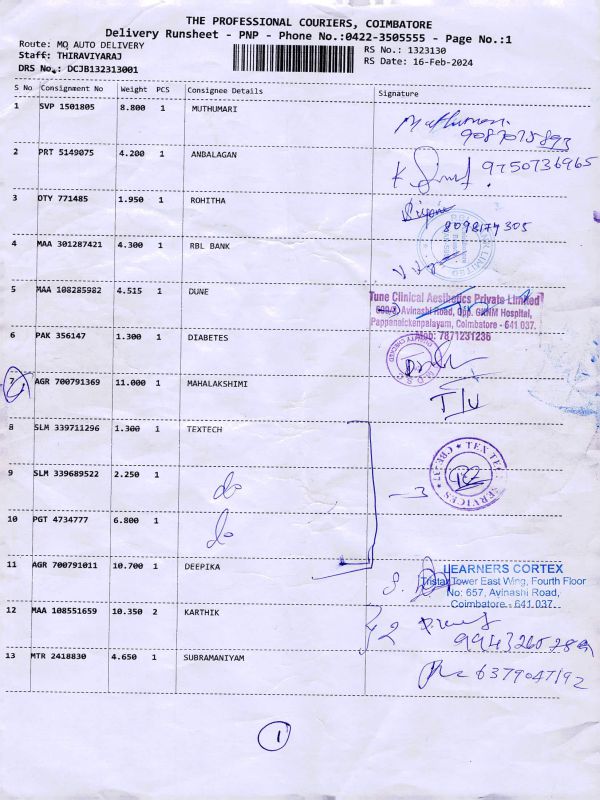 THE PROFESSIONAL COURIERS, COIMBATORE
Delivery Runsheet - PNP - Phone No.:0422-3505555 - Page No.:1
Route: MQ AUTO DELIVERY
RS No.: 1323130
Staff: THIRAVIYARAJ
RS Date: 16-Feb-2024
DRS No.: DCJB132313001
S No Consignment No Weight PCS Consignee Details Signature
1 SVP 1501805 8.800 1 MUTHUMARI
2 PRT 5149075 4.200 1 ANBALAGAN
9750736965
3 OTY 771485 1.950 1 ROHITHA
8098174305
4 MAA 301287421 4.300 1 RBL BANK
5 MAA 108285982 4.515 1 DUNE
Tune Clinical Aesthetics Private Limited
Avinashi Road, Opp. GKNM Hospital,
Pappanaickenpalayam, Coimbatore - 641 037.
Mob: 7871231236
6 PAK 356147 1.300 1 DIABETES
7 AGR 700791369 11.000 1 MAHALAKSHIMI
8 SLM 339711296 1.300 1 TEXTECH
TEX TECH SERVICES
9 SLM 339689522 2.250 1 do
3
10 PGT 4734777 6.800 1 do
11 AGR 700791011 10.700 1 DEEPIKA
LEARNERS CORTEX
Tristar Tower East Wing, Fourth Floor
No: 657, Avinashi Road,
Coimbatore - 641 037.
12 MAA 108551659 10.350 2 KARTHIK
2
13 MTR 2418830 4.650 1 SUBRAMANIYAM
6379047192
1